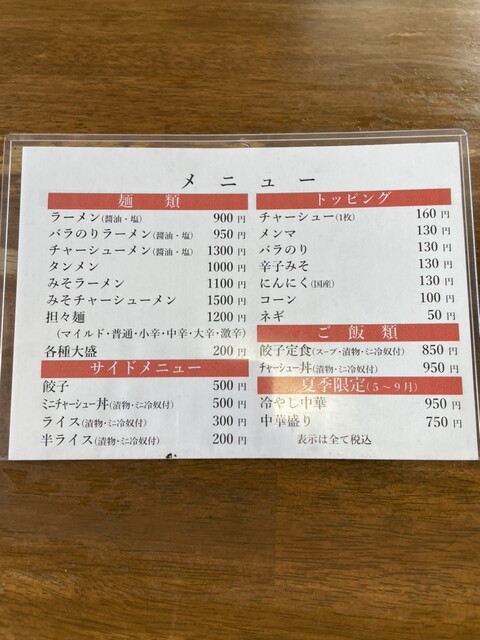 メニュー
麺類
ラーメン(醤油・塩) 900円
バラのりラーメン(醤油・塩) 950円
チャーシューメン(醤油・塩) 1300円
タンメン 1000円
みそラーメン 1100円
みそチャーシューメン 1500円
担々麺 1200円
(マイルド・普通・小辛・中辛・大辛・激辛)
各種大盛 200円
サイドメニュー
餃子 500円
ミニチャーシュー丼(漬物・ミニ冷奴付) 500円
ライス(漬物・ミニ冷奴付) 300円
半ライス(漬物・ミニ冷奴付) 200円
トッピング
チャーシュー(1枚) 160円
メンマ 130円
バラのり 130円
辛子みそ 130円
にんにく(国産) 130円
コーン 100円
ネギ 50円
ご飯類
餃子定食(スープ・漬物・ミニ冷奴付) 850円
チャーシュー丼(漬物・ミニ冷奴付) 950円
夏季限定(5～9月)
冷やし中華 950円
中華盛り 750円
表示は全て税込